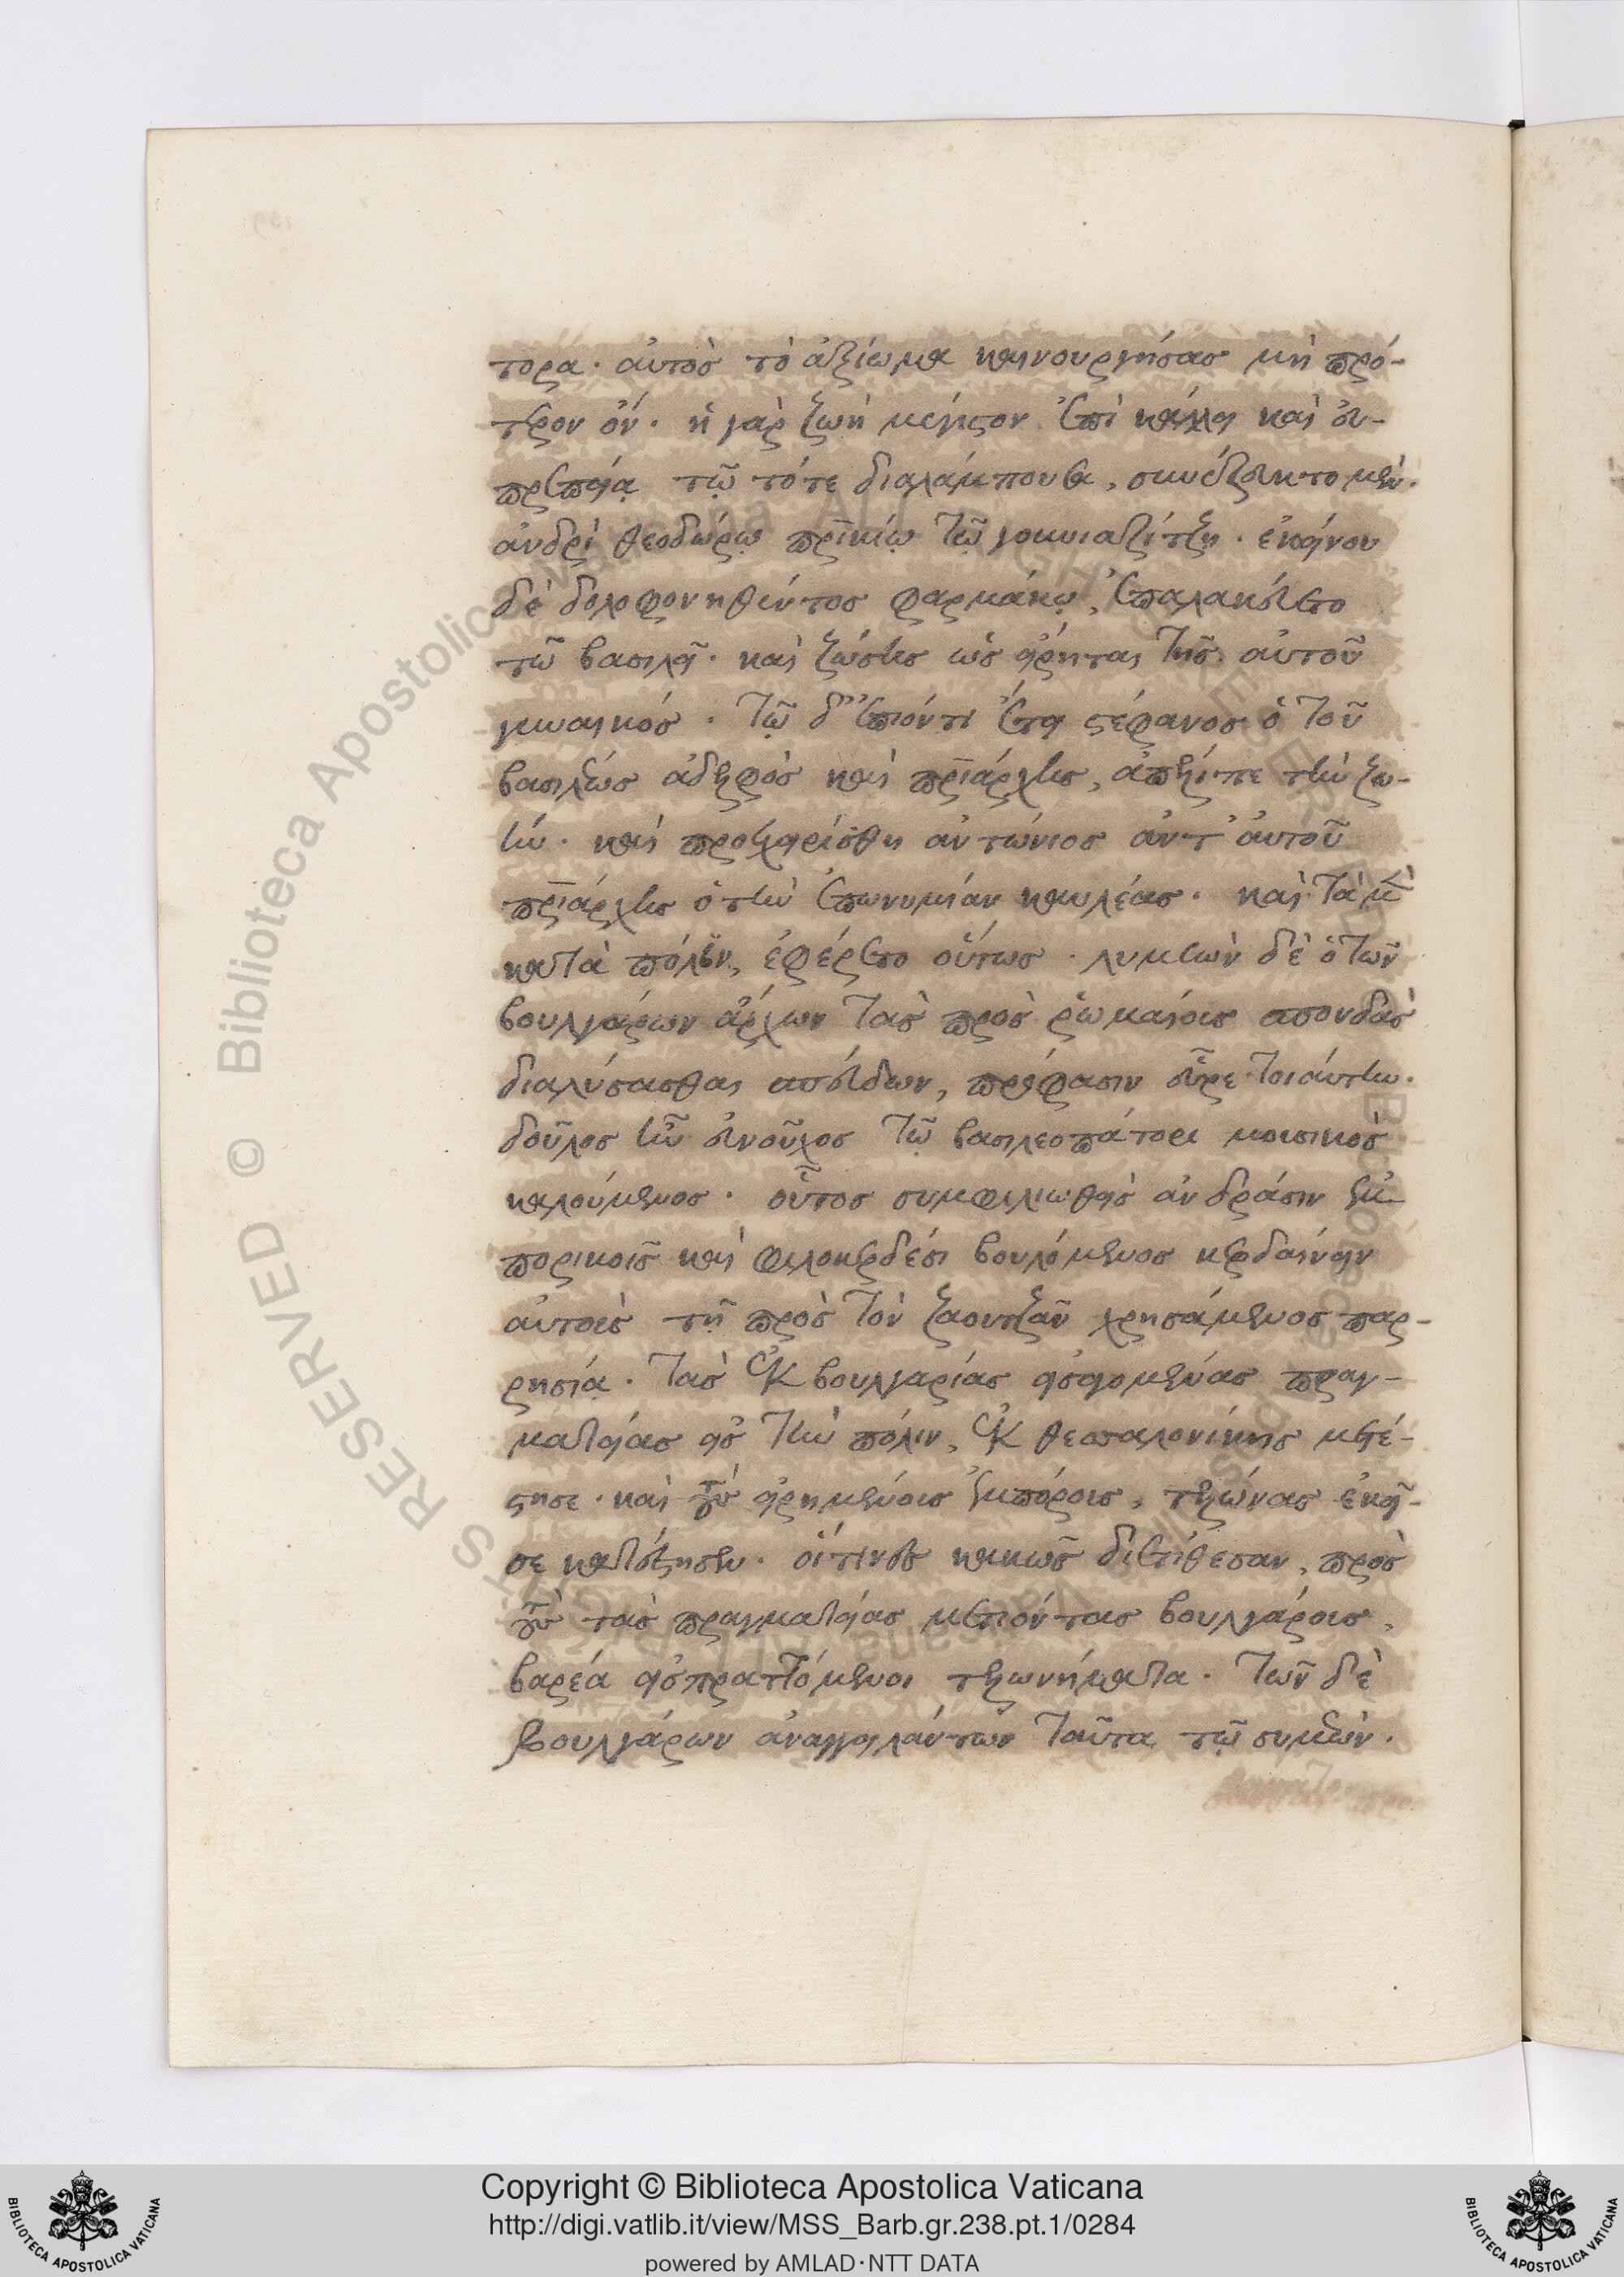 τορα· αὐτὸς τὸ ἀξίωμα καινουργήσας μὴ πρό-
τερον ὄν. ἡ γὰρ ζωὴ μέγιστον ἐπὶ κάλλει καὶ εὐ-
πρεπείᾳ τῷ τότε διαλάμπουσα, συνέζευκτο μὲν
ἀνδρὶ θεοδώρῳ πρικίῳ τῷ γουνιαζίτζη. ἐκείνου
δὲ δολοφονηθέντος φαρμάκῳ, ἐπαλακεύετο
τῷ βασιλεῖ. καὶ ζώσης ὡς εἴρηται τῆς αὐτοῦ
γυναικός. τῷ δ' ἐπιόντι ἔτει στέφανος ὁ τοῦ
βασιλέως ἀδελφὸς καὶ πριάρχης, ἀπέλιπε τὴν ζω-
ήν. καὶ προεχειρίσθη ἀντώνιος ἀντ' αὐτοῦ
πριάρχης ὁ τὴν ἐπωνυμίαν καυλέας. καὶ τὰ μὲν
κατὰ πόλιν, ἐφέρετο οὕτως. συμεὼν δὲ ὁ τῶν
βουλγάρων ἄρχων τὰς πρὸς ῥωμαίους σπονδὰς
διαλύσασθαι σπεύδων, πρόφασιν εὗρε τοιαύτην.
δοῦλος ἦν εὐνοῦχος τῷ βασιλεοπάτορι μουσικὸς
καλούμενος. οὗτος συμφιλιωθεὶς ἀνδράσιν ἐμ-
πορικοῖς καὶ φιλοκερδέσι βουλόμενος κερδαίνειν
αὐτοὺς τῇ πρὸς τὸν ζαουτζᾶν χρησάμενος παρ-
ρησίᾳ. τὰς ἐκ βουλγαρίας εἰσαγομένας πραγ-
ματείας εἰς τὴν πόλιν, ἐκ θεσσαλονίκης μετέ-
στησε. καὶ τοὺς εἰρημένους ἐμπόρους, τελώνας ἐκεῖ-
σε κατέστησεν. οἵτινες κακῶς διετίθεσαν, πρὸς
τοὺς τὰς πραγματείας μετιόντας βουλγάρους,
βαρέα εἰσπραττόμενοι τελωνήματα. τῶν δὲ
βουλγάρων ἀναγγειλάντων ταῦτα τῷ συμεών.
Copyright © Biblioteca Apostolica Vaticana
http://digi.vatlib.it/view/MSS_Barb.gr.238.pt.1/0284
powered by AMLAD·NTT DATA
BIBLIOTECA APOSTOLICA VATICANA
BIBLIOTECA APOSTOLICA VATICANA